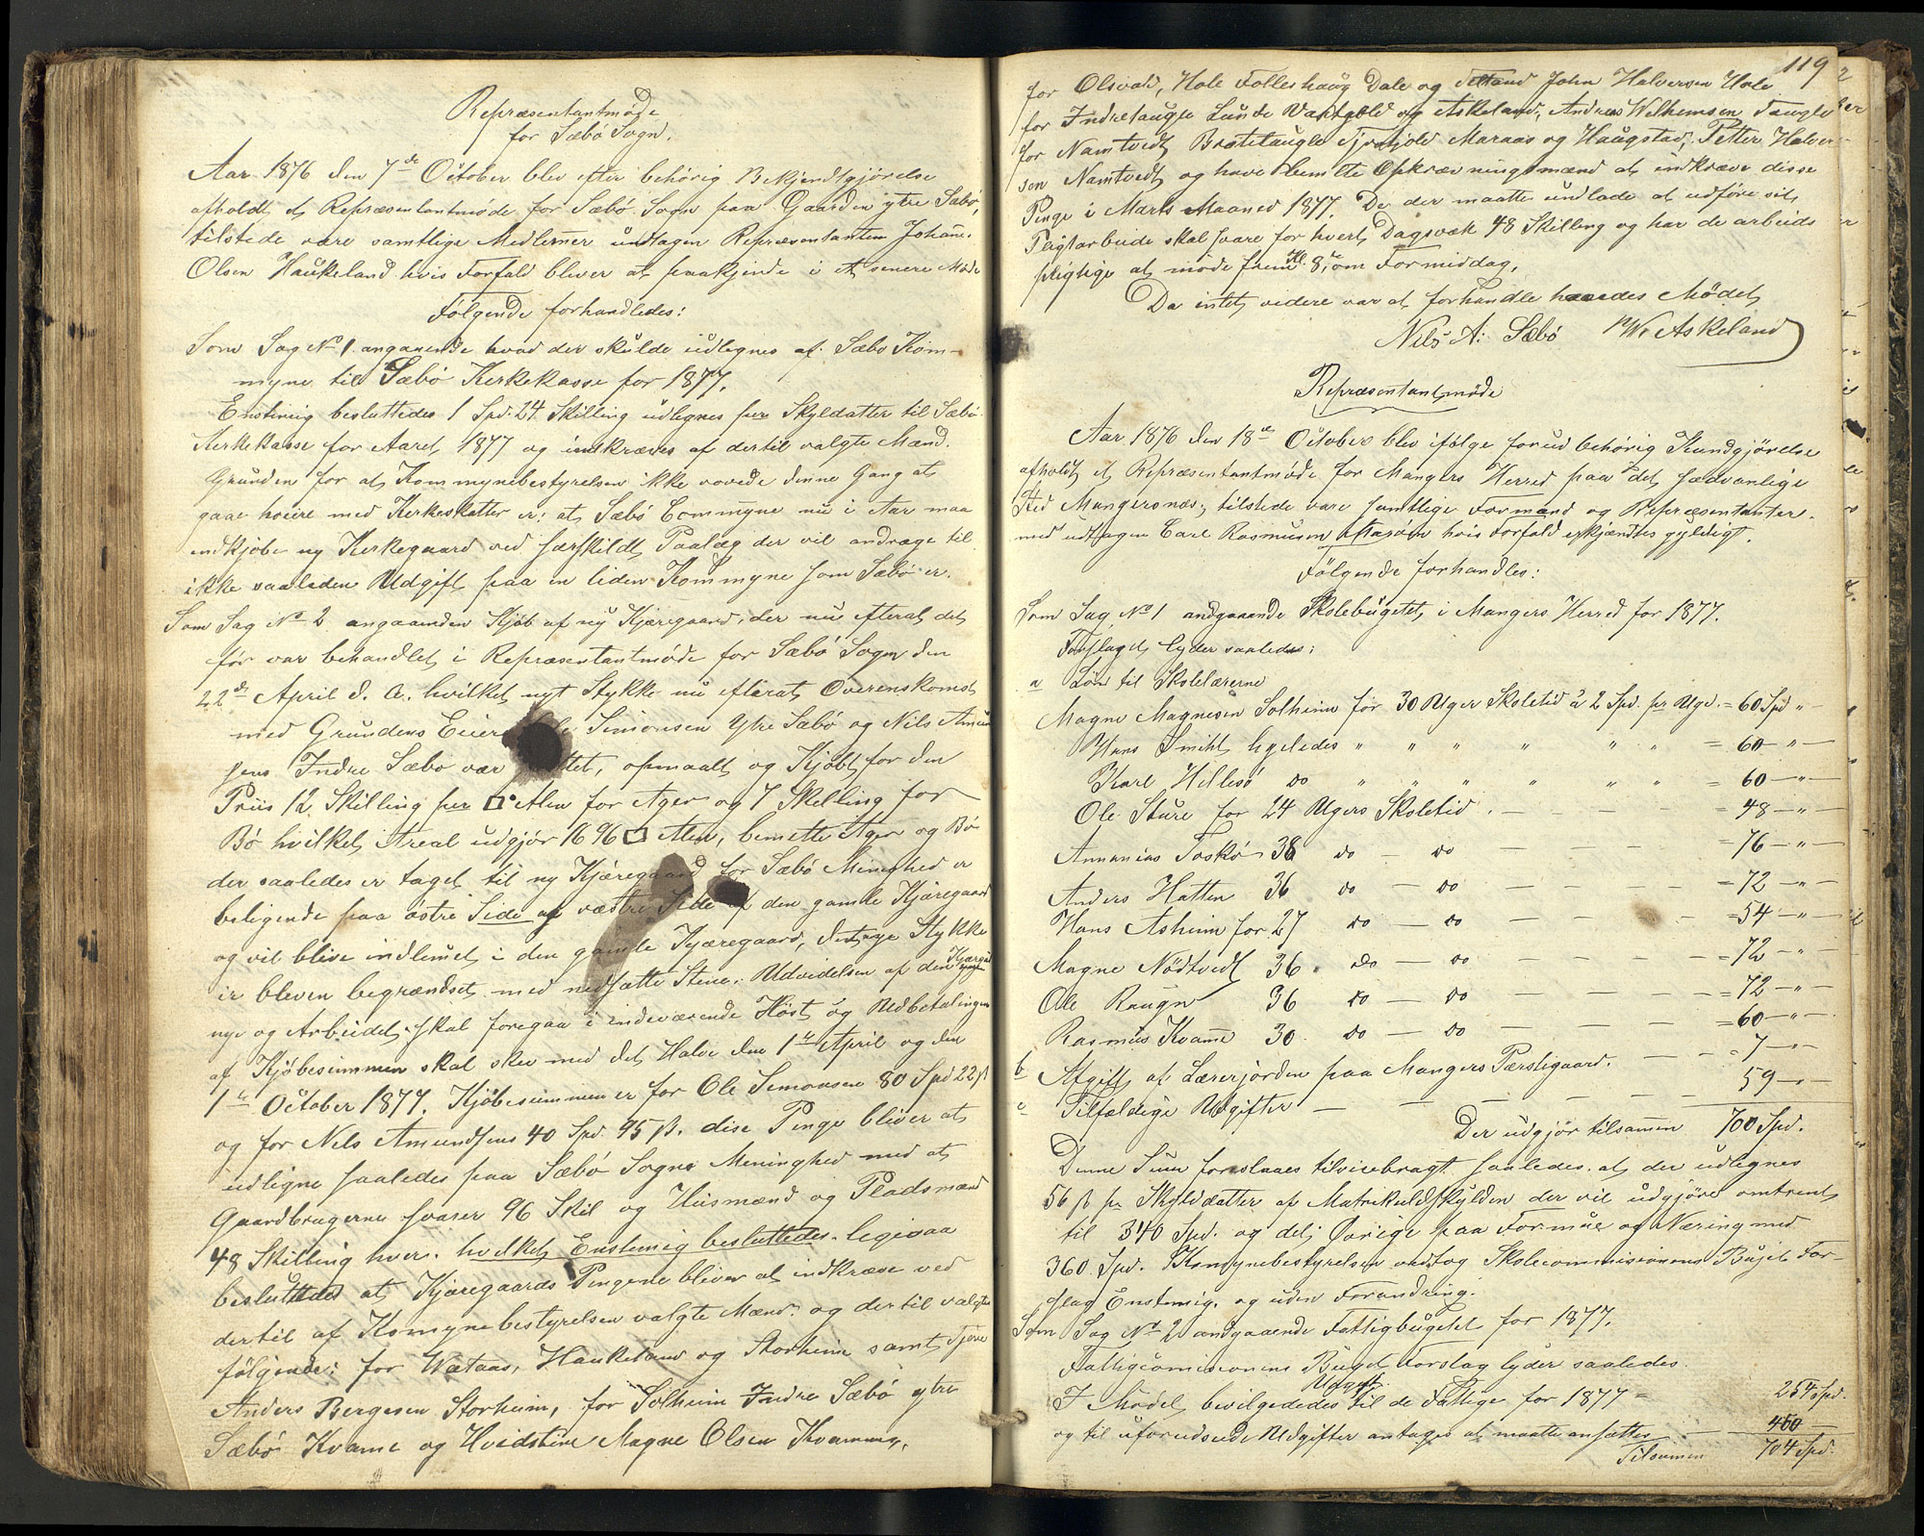 Repræsentantmøde
for Sæbø Sogn.
Aar 1876 den 7de October blev efter behørig Bekjendtgjørelse
afholdt et Repræsentantmøde for Sæbø Sogn paa Gaarden ytre Sæbø,
tilstede vare samtlige Medlemer undtagen Repræsentanten Johans.
Olsen Haukeland hvis Forfald bliver at paakjende i et senere Møde
Følgende forhandledes:
Som Sag No 1. angaaende hvad der skulde udlegnes af Sæbø Kom-
myne til Sæbø Kerkekasse for 1877.
Enstimig besluttedes 1 Spd. 24 Skilling udlegnes per Skyldatter til Sæbø
Kerkekasse for Aaret 1877 og indkræves af dertil valgte Mænd.
Grunden for at Kommynebestyrelsen ikke vovede denne Gang at
gaae høiere med Kerkeskatter er: at Sæbø Commyne nu i Aar maa
indkjøbe ny Kerkegaard ved særskildt Paalæg der vil andrage til
ikke saaliden Udgift paa en liden Kommyne som Sæbø er.
Som Sag No 2 angaaenden Kjøb af ny Kjæregaard, der nu efterat det
før var behandlet i Repræsentantmøde for Sæbø Sogn den
22de April d. A. hvilket nyt Stykke nu efterat Overenskomst
med Grundens Eiere Simonsen Ytre Sæbø og Nils Amund
sens Indre Sæbø var opmaalt og Kjøbt for den
Priis 12 Skilling per □ Alen for Ager og 7 Skelling for
Bø hvilket Areal udgjør 1696 □ Alen, bemelte Ager og Bø
der saaledes er taget til ny Kjæregaard for Sæbø Menighed er
beligende paa østre Side og væstre Side af den gamle Kjæregaard
og vil blive indlemet i den gamle Kjæregaard, det nye Stykke
er bleven begrændset med nedsatte Stene. Udvidelsen af den
nye og Arbeidet skal foregaa i indeværende Høst og Udbetalingen
af Kjøbesummen skal skee med det Halve den 1te April og den
1te October 1877. Kjøbesummen er for Ole Simonsen 80 Spd 22 ß
og for Nels Amundsens 40 Spd. 95 ß. disse Penge bliver at
udligne saaledes paa Sæbø Sogns Meninghed med at
Gaardbrugerne svarer 96 Skil og Husmænd og Pladsmænd
48 Skilling hver. hvilket Enstemig besluttedes. legesaa
besluttedes at Kjæregaards Pengene bliver at indkræve ved
dertil af Komynebestyrelsen valgte Mænd. og dertil valgtes
følgende: for Wataas, Haukeland og Storheim samt
Anders Bergesen Storheim, for Solheim Indre Sæbø ytre
Sæbø Kvame og Hvidsteen Magne Olsen Kvamme,
119
for Olsvold, Hole Folleshaug Dale og John Halversen Hole
for Indretaugle Lunde Vaktgold og Askeland, Andreas Wilhemsen Taugle
for Namtvedt Brotetaugle Maraas og Haugstad, Petter Halver-
sen Namtvedt og have bemelte Opkrævningsmænd at indkræve disse
Penge i Marts Maaned 1877. De der maatte undlade at udføre sit
Pligtarbeide skal svare for hvert Dagsværk 48 Skilling og har de arbeids
pligtige at møde frem Kl. 8 om Formiddag.
Da intet videre var at forhandle hævedes Mødet
Nils A: Sæbø Askeland
Repræsentantmøde
Aar 1876 den 18de October blev ifølge forud behørig Kundgjørelse
afholdt et Repræsentantmøde for Mangers Herred paa det sædvanlige
Sted Mangersnæs; tilstede vare samtlige Formænd og Repræsentanter
med udtagen Carl Rasmusen hvis Forfald erkjændtes gyldigt.
Følgende forhandles:
Som Sag No 1 andgaaende Skolebugetet i Mangers Herred for 1877.
Forslaget lyder saaledes:
a Løn til Skolelærerne
Magne Magnesen Solheim for 30 Uger Skoletid à 2 Spd. pr Uge. = 60 Spd " -
Hans Smiht ligeledes " " " " " " = 60 — " —
Karl Hillesø do " " " " " " = 60 — " —
Ole Sture for 24 Ugers Skoletid . - - - = 48 — " —
Annanias Toskø 38 do — do — — — - 76 — " —
Anders Hatten 36 do — do — — — = 72 — " —
Hans Asheim for 27 do — do — — — = 54 — " —
Magne Nødtvedt 36 do — do — — — = 72 — " —
Ole Raugn 36 do — do — — — = 72 — " —
Rasmus Kvame 30 do — do — — — = 60 — " —
b Afgift af Lærerjorden paa Mangers Præstegaard. — — = 7 — " —
c Tilfældige Udgifter — — — — — 59 — " —
Der udgjør tilsamen 700 Spd.
Denne Sum foreslaaes tilveiebragt saaledes at der udlegnes
56 ß pr Skylddatter af Matrikulskylden der vil udgjøre omtrent
til 340 Spd. og det Øvrige paa Formue og Næring med
360 Spd. Komynebestyrelsen vedtog Skolecommissionens Bujet For-
slag Enstemig. og uden Forandring.
Som Sag No 2 andgaaende Fattigbugetet for 1877.
Fattigcomisionens Buget Forslag lyder saaledes.
I Mødet bevilgededes Udgift til de Fattige for 1877 = 254 Spd.
og til uforudseede Udgifter antages at maatte ansættes — 450 —
Tilsamen 704 Spd.